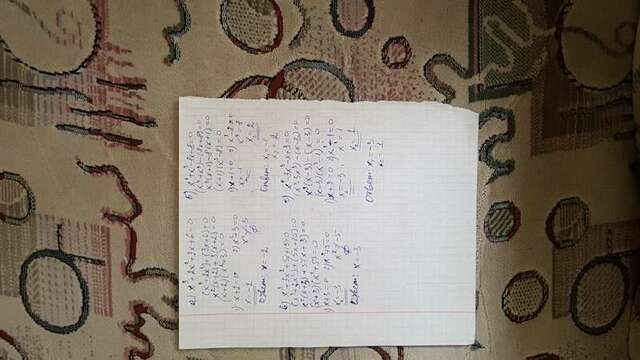 а) x³+2x²+3x+6=0
(x³+2x²)+(3x+6)=0
x²(x+2)+3(x+2)=0
(x+2)(x²+3)=0
1) x+2=0 2) x²+3=0
x=-2 x²≠-3
∅
Ответ: x=-2
б) x⁴+x³-8x-8=0
(x⁴+x³)-(8x+8)=0
x³(x+1)-8(x+1)=0
(x+1)(x³-8)=0
1) x+1=0 2) x³-8=0
x=-1 x³=8
x=2
Ответ: x₁=-1
x₂=2
в) x³+3x²+5x+15=0
(x³+3x²)+(5x+15)=0
x²(x+3)+5(x+3)=0
(x+3)(x²+5)=0
1) x+3=0 2) x²+5=0
x=-3 x²≠-5
∅
Ответ: x=-3
г) x⁴-3x³-x+3=0
(x⁴-3x³)-(x-3)=0
x³(x-3)-(x-3)=0
(x-3)(x³-1)=0
1) x+3=0 2) x³-1=0
x=-3 x³=1
x=1
Ответ: x₁=-3
x₂=1